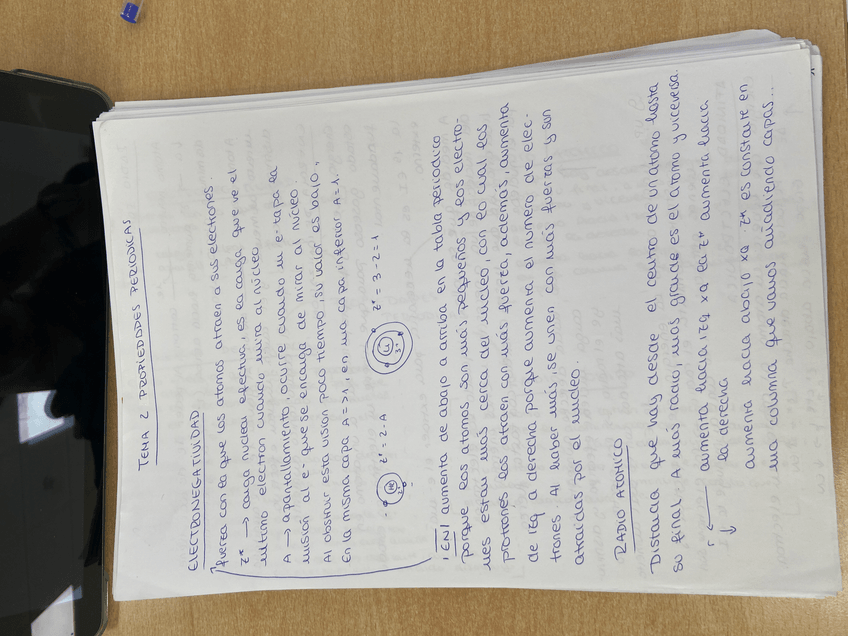 TEMA 2 PROPIEDADES PERIODICAS
ELECTRONEGATIVIDAD
fuerza con la que los atomos atraen a sus electrones.
z* → carga nuclear efectiva, es la carga que ve el
ultimo electron cuando mira al núcleo.
A → apantallamiento, ocurre cuando un e- tapa la
visión al e- que se encarga de mirar al núcleo.
Al obstruir esta vision poco tiempo, su valor es bajo,
En la misma capa A=>1, en una capa inferior A=1.
He
2+
z* = 2-A
Li
3+
z* = 3-2=1
|EN| aumenta de abajo a arriba en la tabla periodica
porque los atomos son más pequeños y los electro-
nes estan más cerca del nucleo, con lo cual los
protrones los atraen con más fuerza, ademas, aumenta
de izq a derecha porque aumenta el numero de elec-
trones. Al haber más, se unen con más fuerzas y son
atraidas por el nucleo.
RADIO ATOMICO
Distancia que hay desde el centro de un atomo hasta
su final. A más radio, más grande es el atomo y viceversa.
r ← aumenta hacia izq xq la z* aumenta hacia
↓ la derecha
aumenta hacia abajo xq z* es constante en
una columna que vamos añadiendo capas...